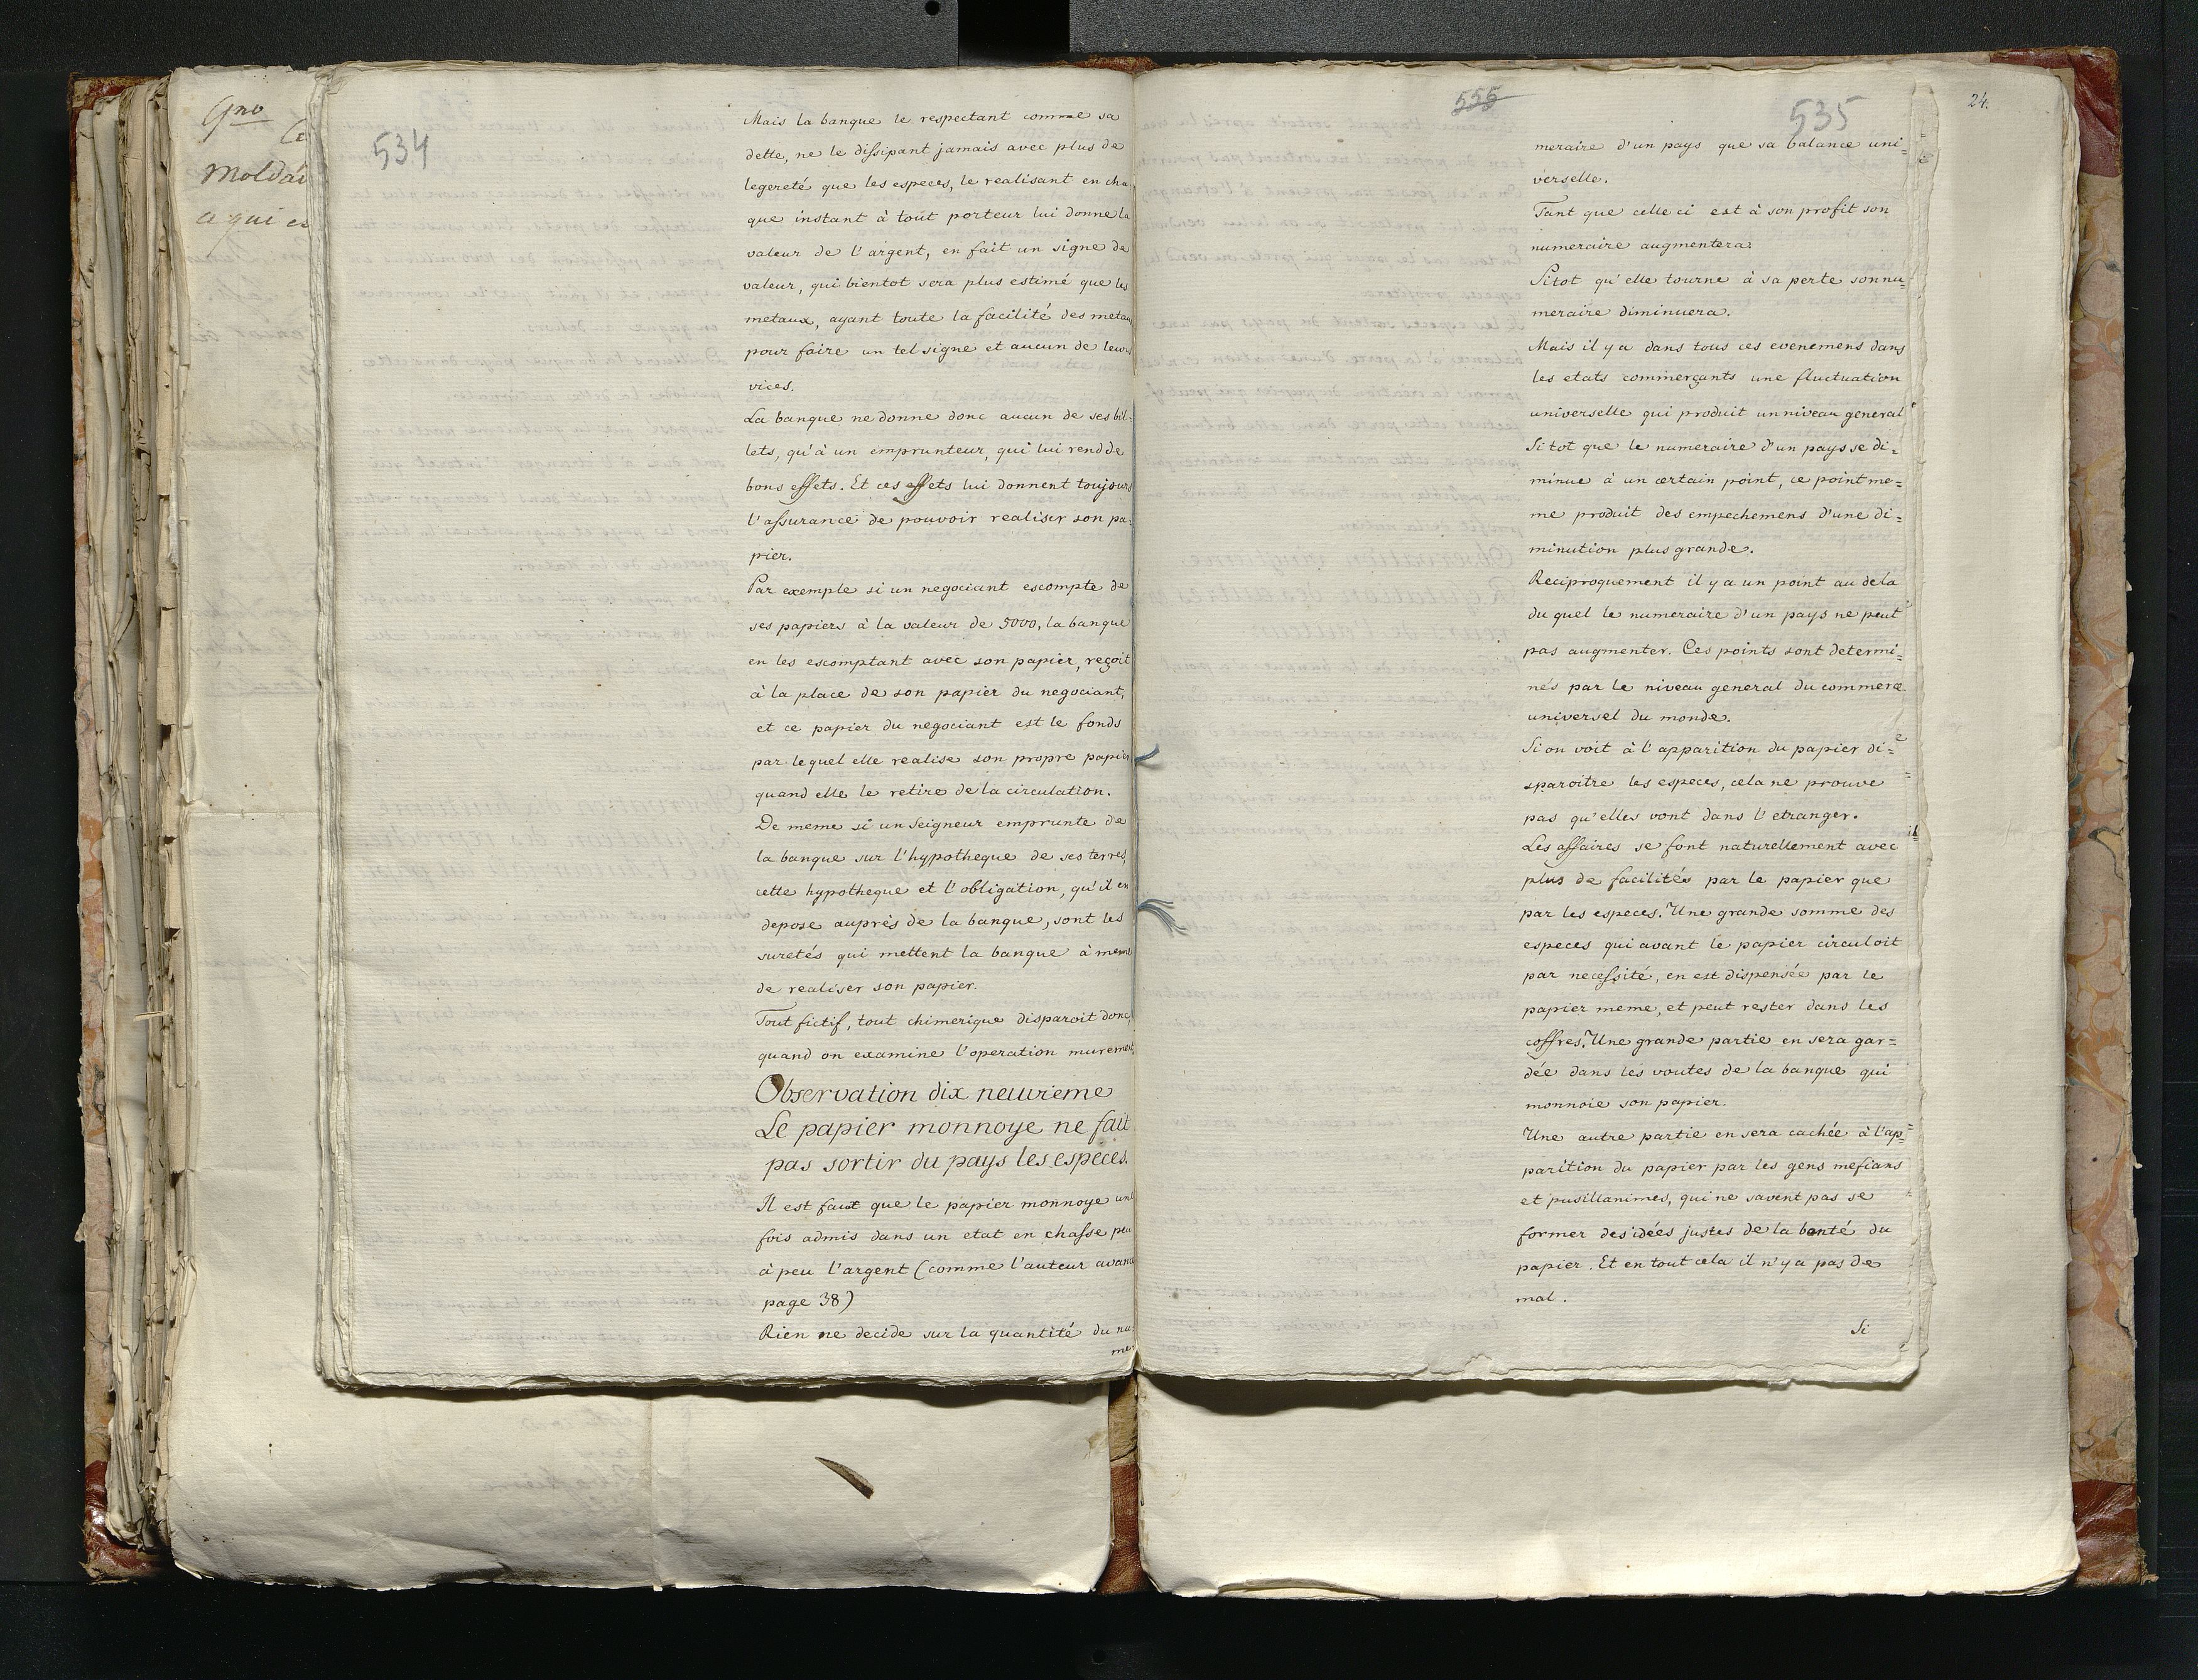 534
Mais la banque le respectant comme sa
dette, ne le dissipant jamais avec plus de
legereté que les especes, le realisant en cha
que instant à tout porteur lui donne la
valeur de l'argent, en fait un signe de
valeur, qui bientot sera plus estimé que les
metaux, ayant toute la facilité des metau
pour faire un tel signe et aucun de leurs
vices.
La banque ne donne donc aucun de ses bil-
lets, qu'à un emprunteur, qui lui rend de
bons effets. Et ces effets lui donnent toujours
l'assurance de pouvoir realiser son pa=
pier.
Par exemple si un negociant escompte de
ses papiers à la valeur de 5000, la banque
en les escomptant avec son papier, reçoit
à la place de son papier du negociant,
et ce papier du negociant est le fonds
par lequel elle realise son propre papier
quand elle le retire de la circulation.
De meme si un Seigneur emprunte de
la banque sur l'hypotheque de ses terres,
cette hypotheque et l'obligation, qu'il en
depose auprés de la banque, sont les
suretés qui mettent la banque à meme
de realiser son papier.
Tout fictif, tout chimerique disparoit donc,
quand on examine l'operation murement.
Observation dix neuvieme
Le papier monnoye ne fait
pas sortir du pays les especes.
Il est faux que le papier monnoye une
fois admis dans un etat en chasse peu
à peu l'argent (comme l'auteur avance
page 38)
Rien ne decide sur la quantité du nu=
me=
Gno
Ce
Moldav
ce qui es
555
535
24.
meraire d'un pays que sa balance uni=
verselle.
Tant que celle ci est à son profit son
numeraire augmentera.
Sitot qu'elle tourne à sa perte son nu=
meraire diminuera.
Mais il y a dans tous ces evenemens dans
les etats commerçants une fluctuation
universelle qui produit un niveau general
Si tot que le numeraire d'un pays se di=
minue à un certain point, ce point me=
me produit des empechemens d'une di=
minution plus grande.
Reciproquement il y a un point au dela
du quel le numeraire d'un pays ne peut
pas augmenter. Ces points sont determi=
nés par le niveau general du commerce
universel du monde.
Si on voit à l'apparition du papier di=
sparoitre les especes, cela ne prouve
pas qu'elles vont dans l'etranger.
Les affaires se font naturellement avec
plus de facilités par le papier que
par les especes. Une grande somme des
especes qui avant le papier circuloit
par necessité, en est dispensée par le
papier meme, et peut rester dans les
coffres. Une grande partie en sera gar=
dée dans les voutes de la banque qui
monnoie son papier.
Une autre partie en sera cachée à l'ap=
parition du papier par les gens mefians
et pusillanimes, qui ne savent pas se
former des idées justes de la bonté du
papier. Et en tout cela il n'y a pas de
mal.
Si